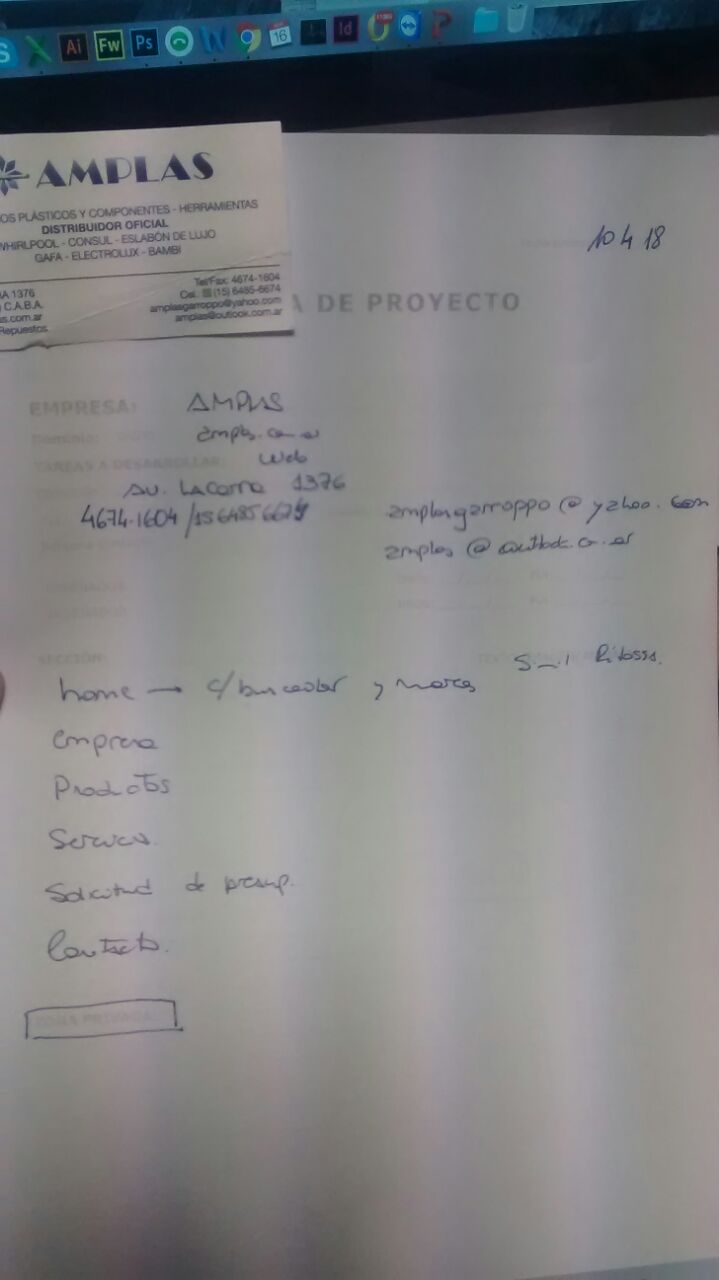 Ai Fw Ps W 16 Id P
AMPLAS
OS PLÁSTICOS Y COMPONENTES - HERRAMIENTAS
DISTRIBUIDOR OFICIAL
WHIRLPOOL - CONSUL - ESLABÓN DE LUJO
GAFA - ELECTROLUX - BAMBI
A 1376
C.A.B.A.
s.com.ar
Repuestos
Tel/Fax: 4674-1604
Cel. (15) 6485-6674
amplasgarroppo@yahoo.com
amplas@outlook.com.ar
10 4 18
A DE PROYECTO
EMPRESA: AMPLAS
Dominio: amplas.com.ar
TAREAS A DESARROLLAR: Web
AV. Lacarra 1376
4674-1604 / 1564856674
amplasgarroppo@yahoo.com
amplas@outlook.com.ar
SECCIÓN:
home → c/buscador y marcas
Empresa
Productos
Servicios
Solicitud de presup.
Contacto.
ZONA PRIVADA